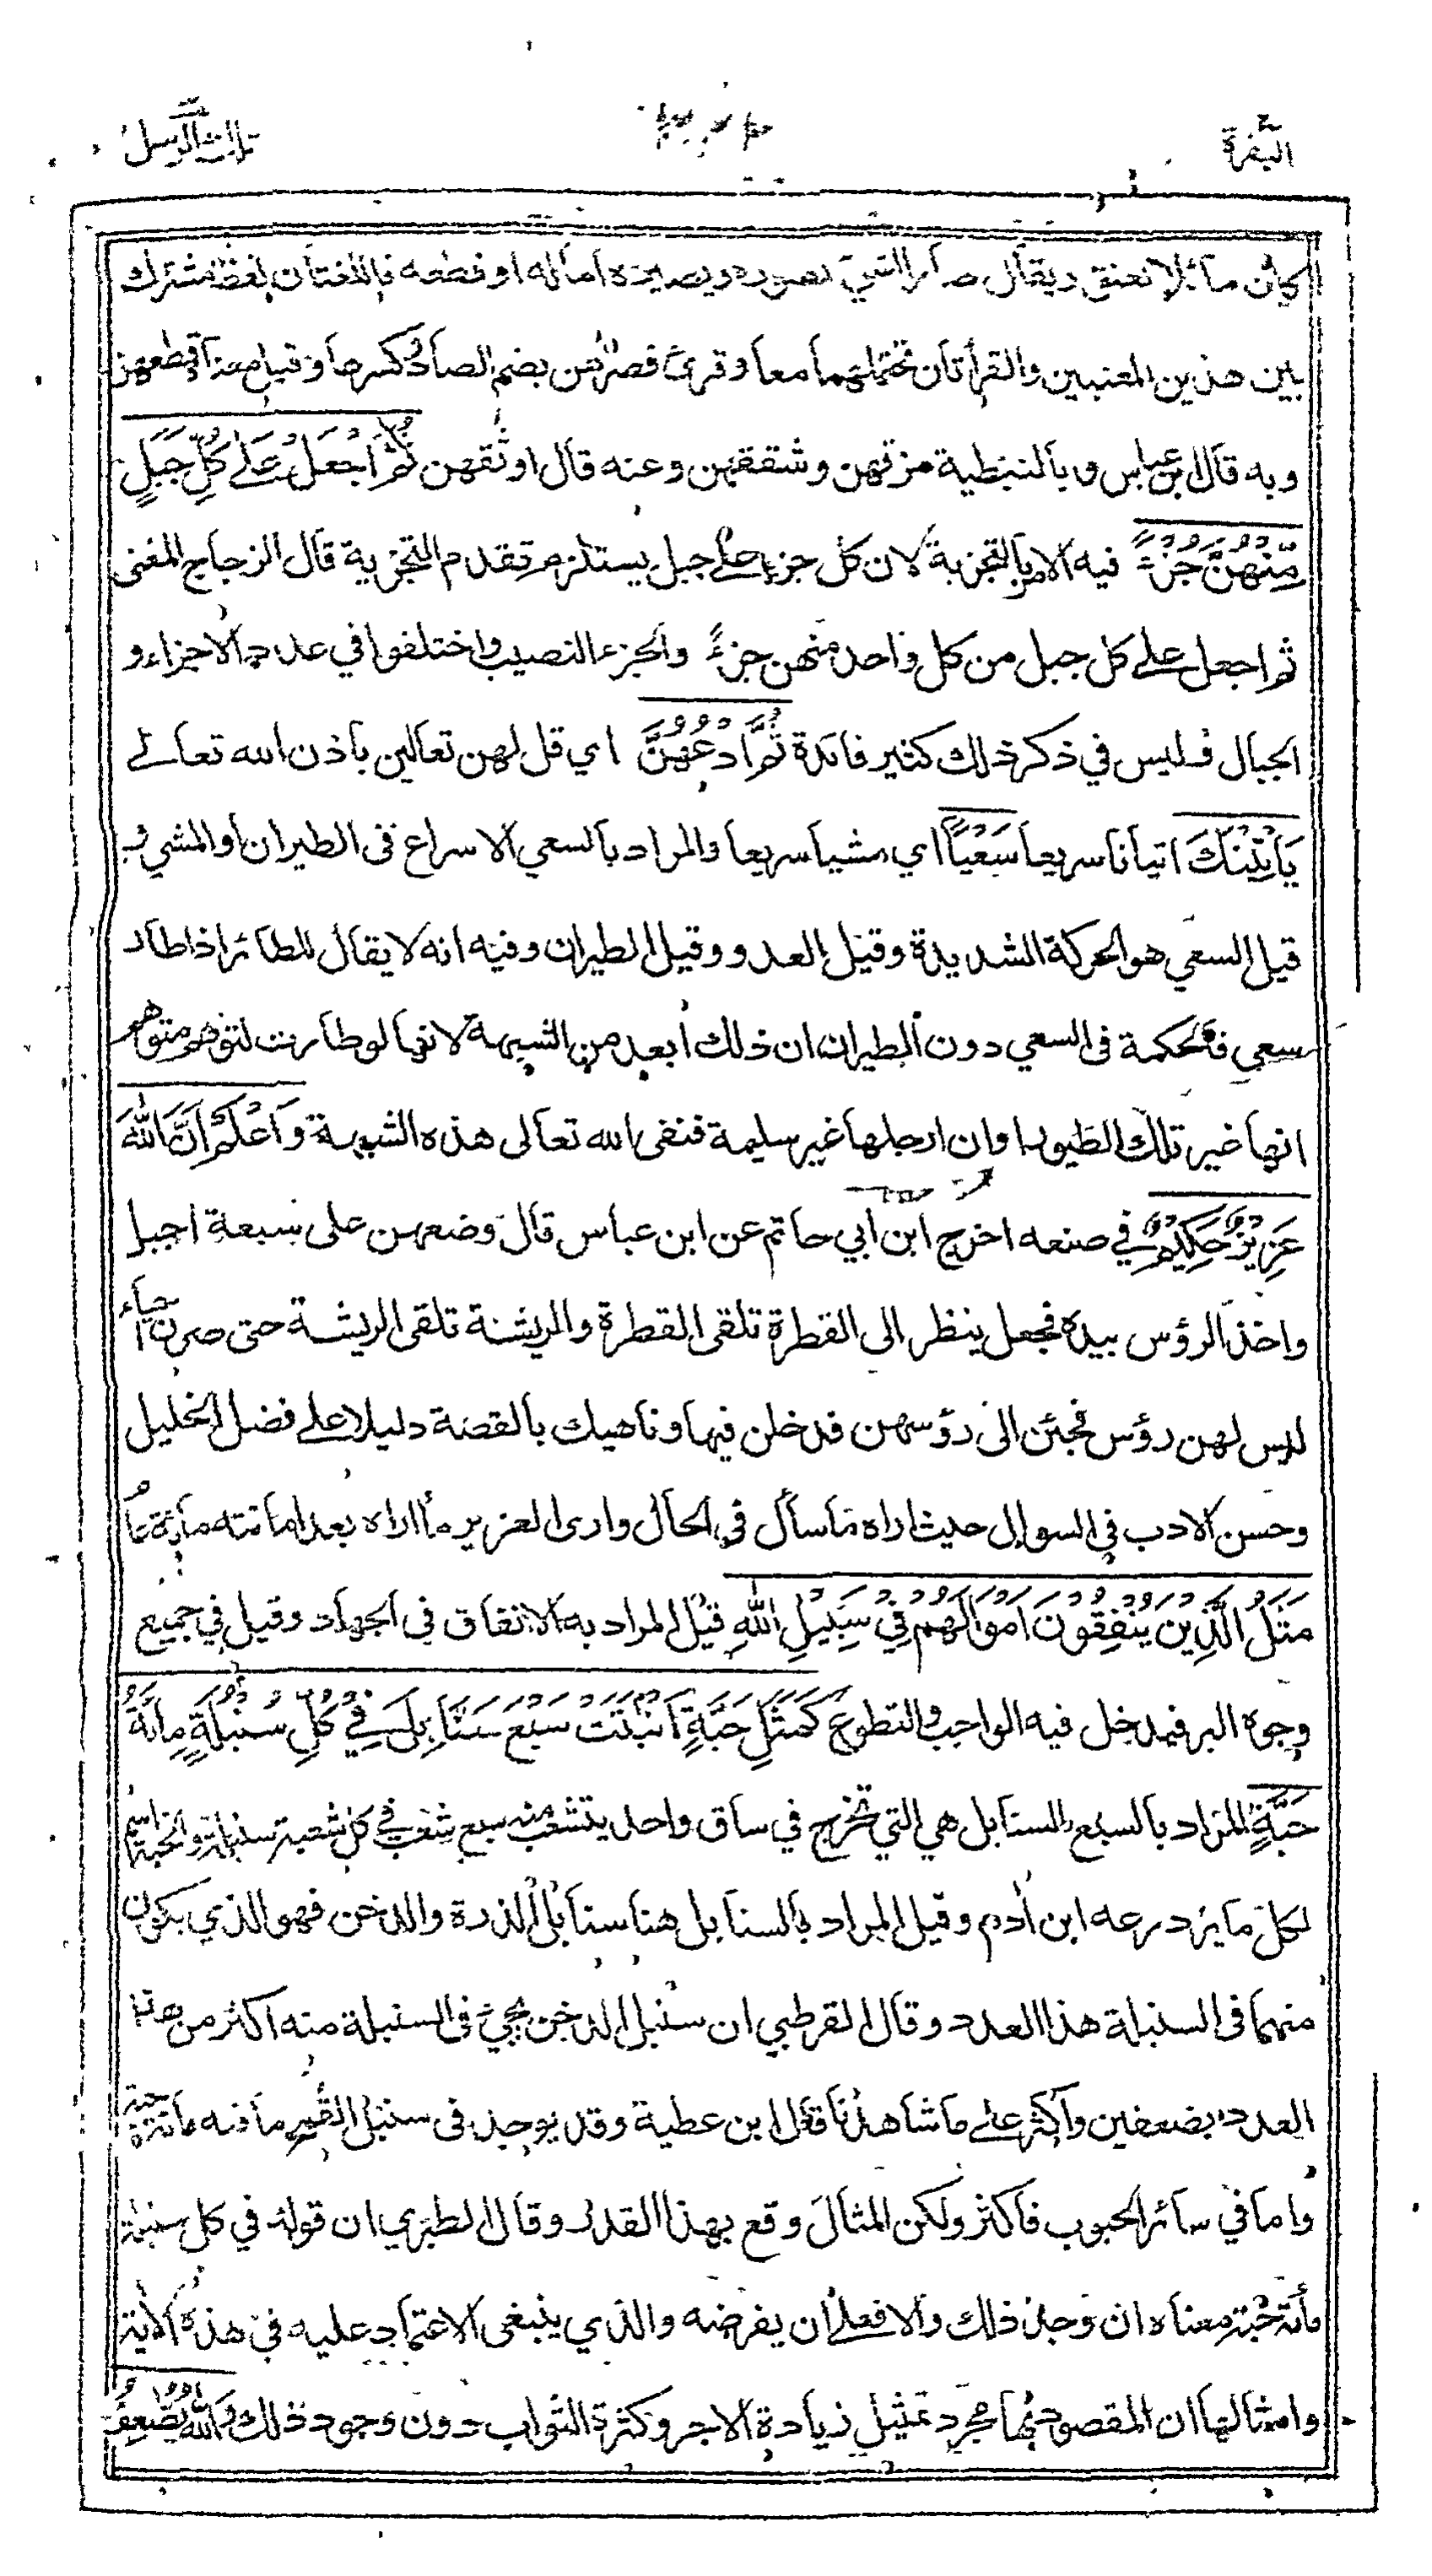 البقرة
تلك الرسل
كان مائل العنق ويقال صار الشيء يصوره ويصيره اماله او قطعه فاللغتان لفظ مشترك
بين هذين المعنيين والقرأتان تحتملهما معا وقرئ فصرهن بضم الصاد وكسرها وقيل معناه قطعهن
وبه قال ابن عباس وبالنبطية مزقهن وشققهن وعنه قال اوثقهن ثُمَّ اجْعَلْ عَلَى كُلِّ جَبَلٍ
مِّنْهُنَّ جُزْءً فيه الامر بالتجزية لان كل جزء على جبل يستلزم تقدم التجزية قال الزجاج المعنى
ثم اجعل على كل جبل من كل واحد منهن جزءً والجزء النصيب واختلفوا في عدد الاجزاء و
الجبال فليس في ذكر ذلك كثير فائدة ثُمَّ ادْعُهُنَّ اي قل لهن تعالين باذن الله تعالى
يَاْتِيْنَكَ اتيانا سريعا سَعْيًا اي مشيا سريعا والمراد بالسعي الاسراع في الطيران او المشي و
قيل السعي هو الحركة الشديدة وقيل العدو وقيل الطيران وفيه انه لا يقال للطائر اذا طار
سعى فالحكمة في السعي دون الطيران ان ذلك ابعد من الشبهة لانها لو طارت لتوهم متوهم
انها غير تلك الطيور او ان ارجلها غير سليمة فنفى الله تعالى هذه الشبهة وَاعْلَمْ اَنَّ اللّٰهَ
عَزِيْزٌ حَكِيْمٌ في صنعه اخرج ابن ابي حاتم عن ابن عباس قال وضعهن على سبعة اجبل
واخذ الرؤس بيده فجعل ينظر الى القطرة تلقى القطرة والريشة تلقى الريشة حتى صرن احياء
ليس لهن رؤس فجئن الى رؤسهن فدخلن فيها وناهيك بالقصة دليلا على فضل الخليل
وحسن الادب في السوال حيث اراه ما سأل في الحال وارى العزير ما اراه بعد اماتته مائة عام
مَثَلُ الَّذِيْنَ يُنْفِقُوْنَ اَمْوَالَهُمْ فِيْ سَبِيْلِ اللّٰهِ قيل المراد به الانفاق في الجهاد وقيل في جميع
وجوه البر فيدخل فيه الواجب والتطوع كَمَثَلِ حَبَّةٍ اَنْبَتَتْ سَبْعَ سَنَابِلَ فِيْ كُلِّ سُنْبُلَةٍ مِائَةُ
حَبَّةٍ المراد بالسبع السنابل هي التي تخرج في ساق واحد يتشعب منه سبع شعب في كل شعبة سنبلة والحبة اسم
لكل ما يزدرعه ابن أدم وقيل المراد بالسنابل هنا سنابل الذرة والدخن فهو الذي يكون
منهما في السنبلة هذا العدد وقال القرطبي ان سنبل الدخن يجيئ في السنبلة منه اكثر من هذا
العدد بضعفين واكثر على ما شاهدنا قال ابن عطية وقد يوجد في سنبل القمح ما فيه مائة حبة
واما في سائر الحبوب فاكثر ولكن المثال وقع بهذا القدر وقال الطبري ان قوله في كل سنبلة
مائة حبة معناه ان وجد ذلك والا فعلى ان يفرضه والذي ينبغي الاعتماد عليه في هذه الأية
وامثالها ان المقصود بها مجرد تمثيل زيادة الاجر وكثرة الثواب دون وجود ذلك وَاللّٰهُ يُضٰعِفُ